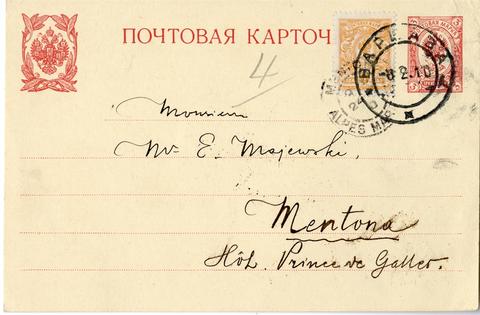 ПОЧТОВАЯ КАРТОЧ
4
ВАРШАВА
8 2 10
ALPES MAR
Monsieur
Mr. E. Majewski,
Mentona
Hôt. Prince de Galles.